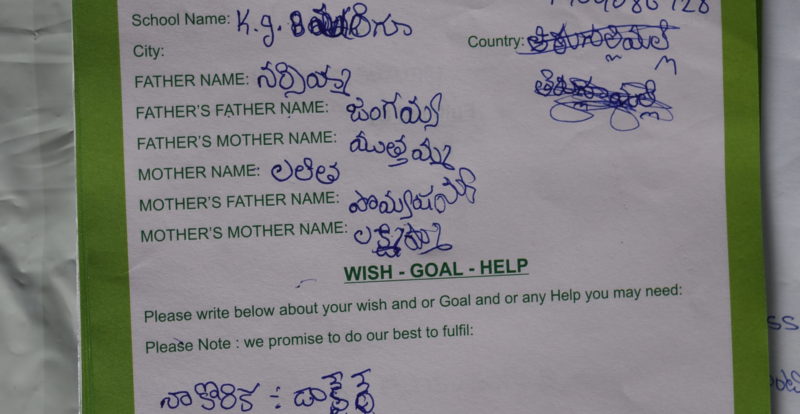 School Name: K.g.
City:
Country:
FATHER NAME: నర్సయ్య
FATHER'S FATHER NAME: జంగయ్య
FATHER'S MOTHER NAME: ముత్తమ్మ
MOTHER NAME: లలిత
MOTHER'S FATHER NAME:
MOTHER'S MOTHER NAME: లక్ష్మమ్మ
WISH - GOAL - HELP
Please write below about your wish and or Goal and or any Help you may need:
Please Note : we promise to do our best to fulfil:
నా కొరిక :- డాక్టర్